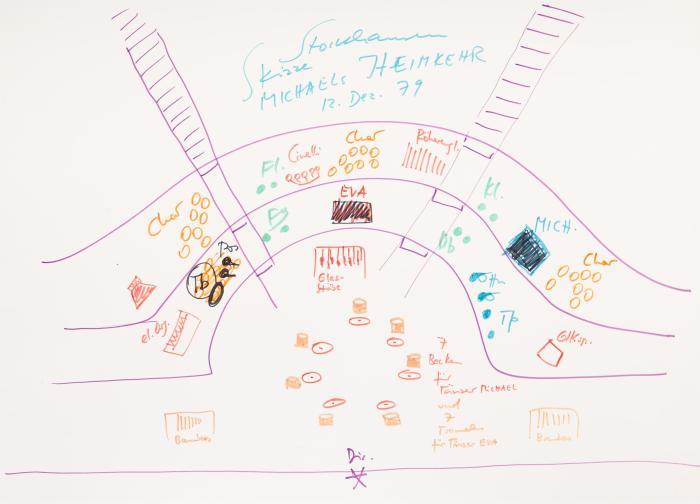 Stockhausen
Skizze
MICHAELs HEIMKEHR
12. Dez. 79
Chor
Röhrengl.
Fl.
Cinelli
Kl.
EVA
Chor
Fg
MICH.
Ob
Pos
Chor
Tb
Glas-
stäbe
Hn
Tp
el. Org.
Glksp.
7
Becken
für
Tänzer MICHAEL
und
7
Trommeln
für Tänzer EVA
Bambus
Bambus
Dir.